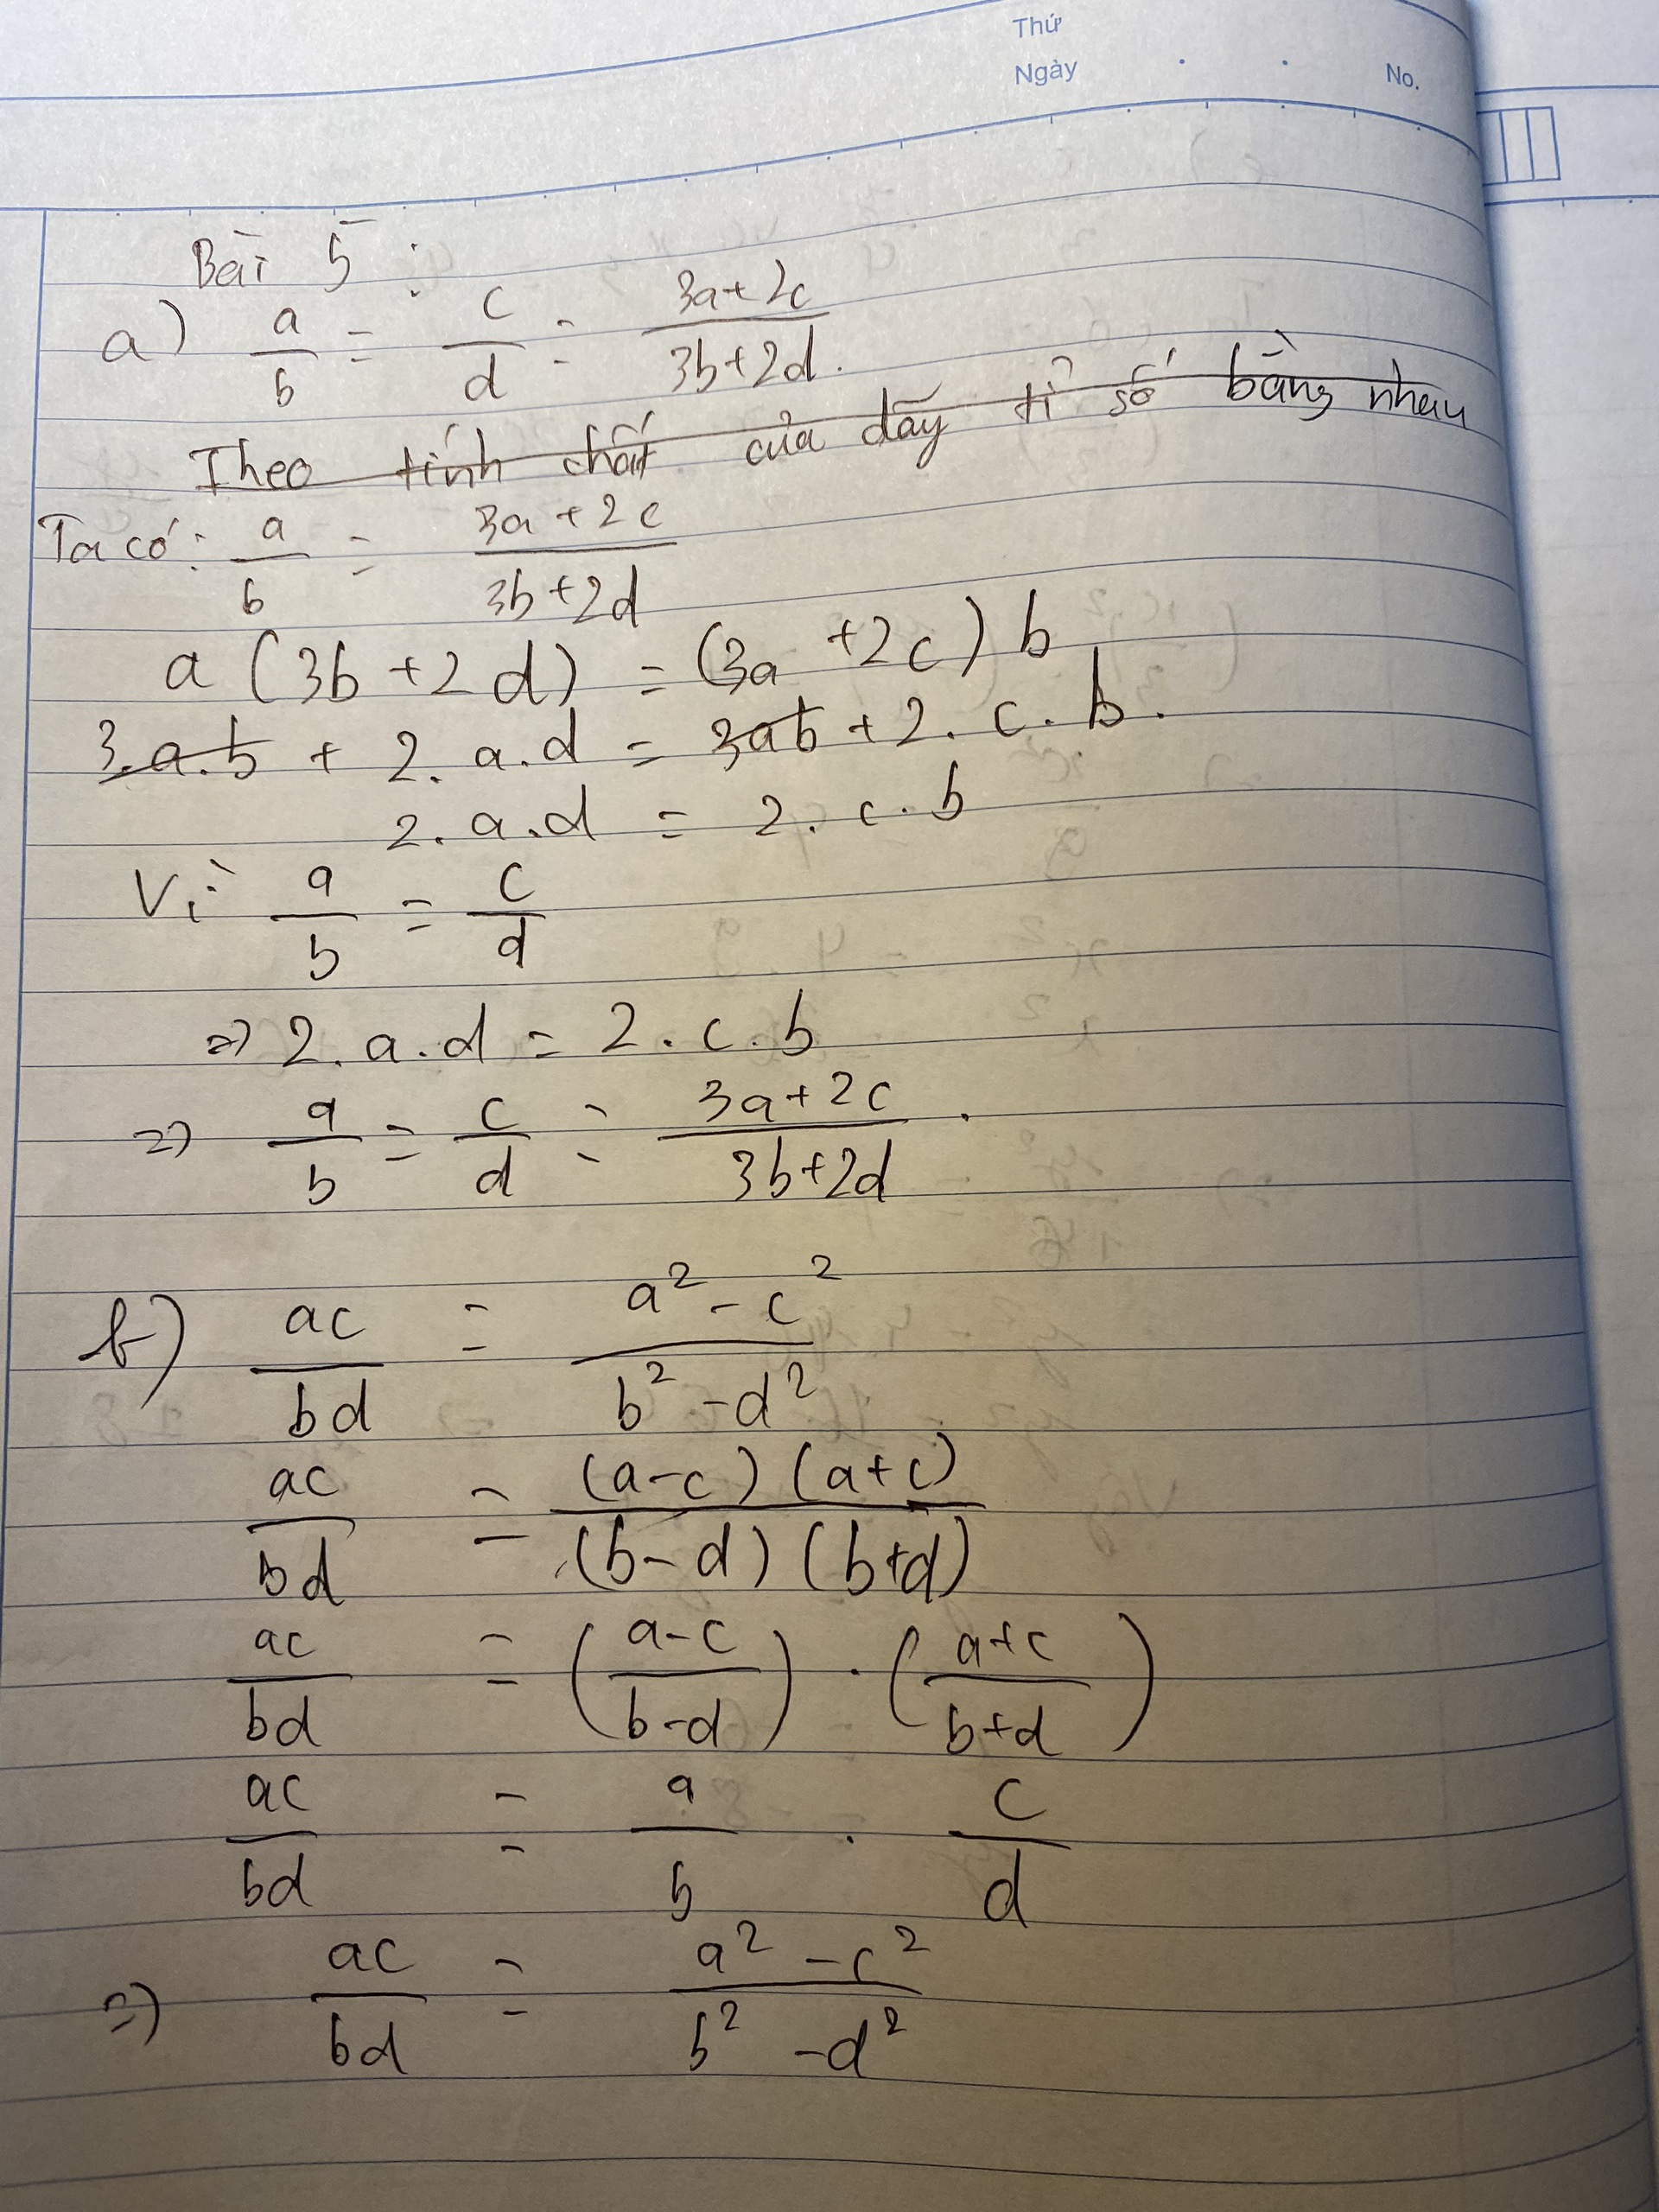 Thứ
Ngày . . No.
Bài 5 :
a) a/b = c/d = (3a+2c)/(3b+2d).
Theo tính chất của dãy tỉ số bằng nhau
Ta có: a/b = (3a+2c)/(3b+2d)
a (3b+2d) = (3a+2c) b
3.a.b + 2.a.d = 3ab + 2.c.b.
2.a.d = 2.c.b
Vì a/b = c/d
=> 2.a.d = 2.c.b
=> a/b = c/d = (3a+2c)/(3b+2d).
b) ac/bd = (a²-c²)/(b²-d²)
ac/bd = (a-c)(a+c)/(b-d)(b+d)
ac/bd = ((a-c)/(b-d)) . ((a+c)/(b+d))
ac/bd = a/b . c/d
=> ac/bd = (a²-c²)/(b²-d²)